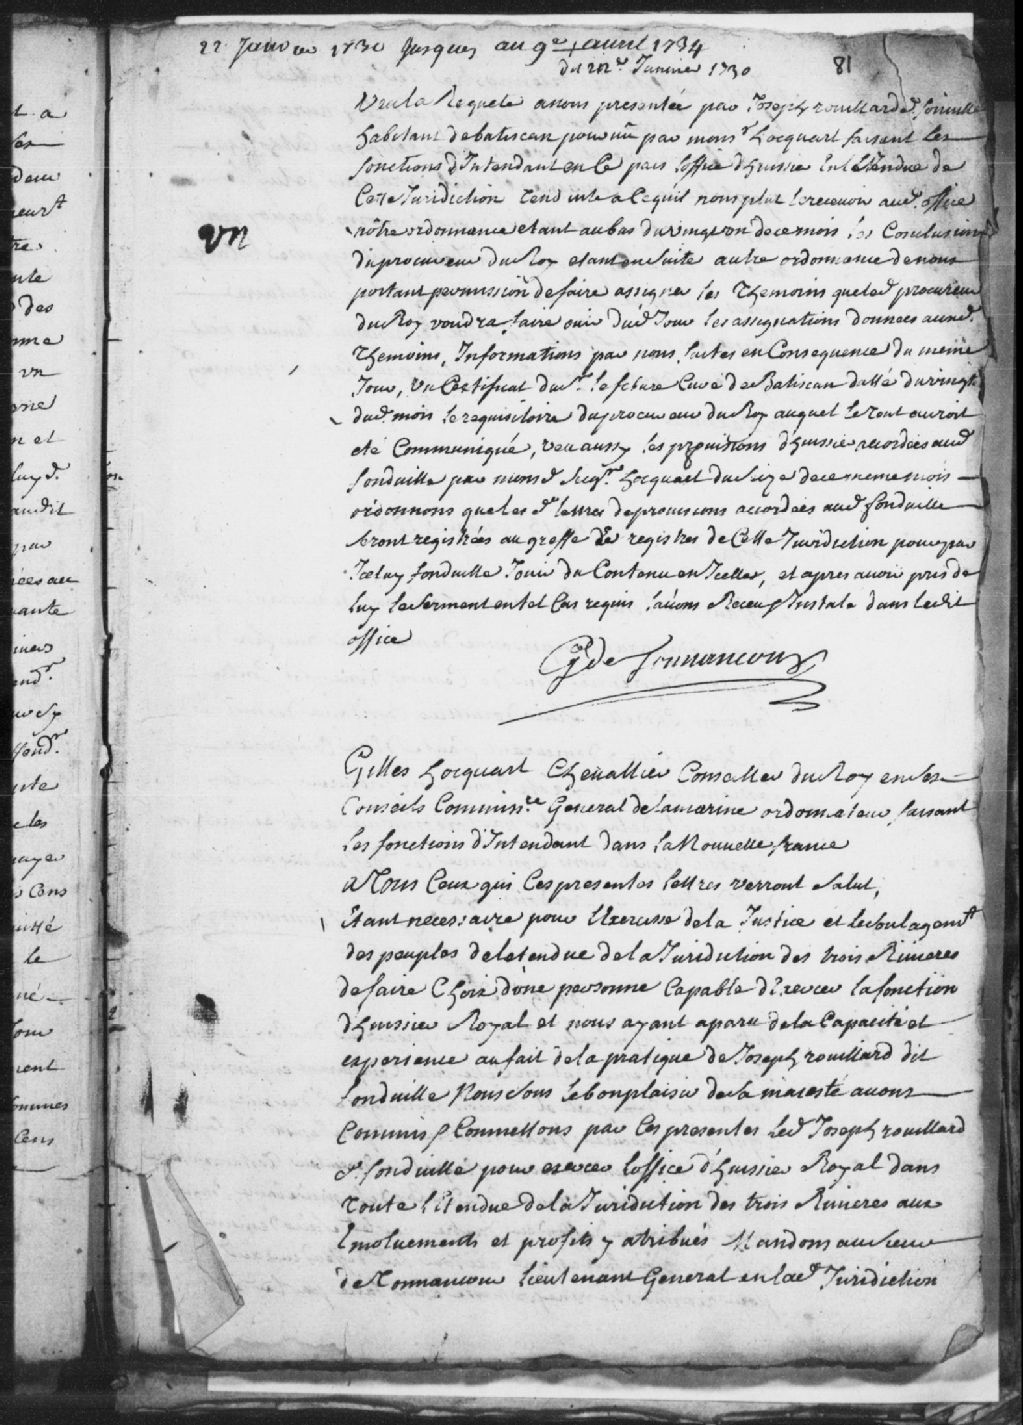 22 Janvier 1730 Jusques au 9e avril 1734
du 22e Janvier 1730
81
Veu la Requete a nous presentée par Joseph rouillard d. fonduille
habitant de batiscan pourvû par mons.r hocquart faisant les
fonctions d'Intendant en ce pais l'office d'huissier en l'Etendue de
Cette Juridiction tendante a ce quil nous plut le recevoir aud. office
nôtre ordonnance etant au bas du vingt un de ce mois les Conclusions
du procureur du Roy etant en suite autre ordonnance de nous
portant permission de faire assigner les Themoins que led. procureur
du Roy voudra faire ouir dud. Jour les assignations donnees auxd.
Themoins, Informations par nous faites en Consequence du meme
Jour, un Certificat du Sr. le febure Curé de Batiscan datté du vingt
dud. mois le requisitoire du procureur du Roy auquel le tout auroit
eté Communiqué, veu aussy les provisions d'huissier accordées aud.
fonduille par mond. Seigr. hocquart du Seize de ce meme mois
ordonnons que les d. lettres de provisions accordées aud. fonduille
Seront registrées au greffe Es registres de Cette Juridiction pour par
Iceluy fonduille Jouir du Contenu en Icelles, et apres avoir pris de
luy le serment en tel Cas requis lavons Receu & Instalé dans ledit
office
vn
G de Tonnancour
Gilles hocquart Chevallier Conseiller du Roy en ses
Conseils Commiss.re General de la marine ordonnateur faisant
les fonctions d'Intendant dans la Nouvelle france
A Tous Ceux qui Ces presentes lettres verront Salut,
Etant necessaire pour l'Exercisse de la Justice et le soulagemt
des peuples de letendue de la Juridiction des trois Rivieres
de faire Choix d'une personne Capable d'Exercer la fonction
d'huissier Royal et nous ayant aparu de la Capacité et
experience au fait de la pratique de Joseph rouillard dit
fonduille Nous Sous le bon plaisir de Sa majesté avons
Commis & Commettons par Ces presentes led. Joseph rouillard
d. fonduille pour exercer l'office d'huissier Royal dans
toute l'Etendue de la Juridiction des trois Rivieres aux
Emoluements et profits y atribués Mandons au Sieur
de Tonnancour lieutenant General en lad. Juridiction